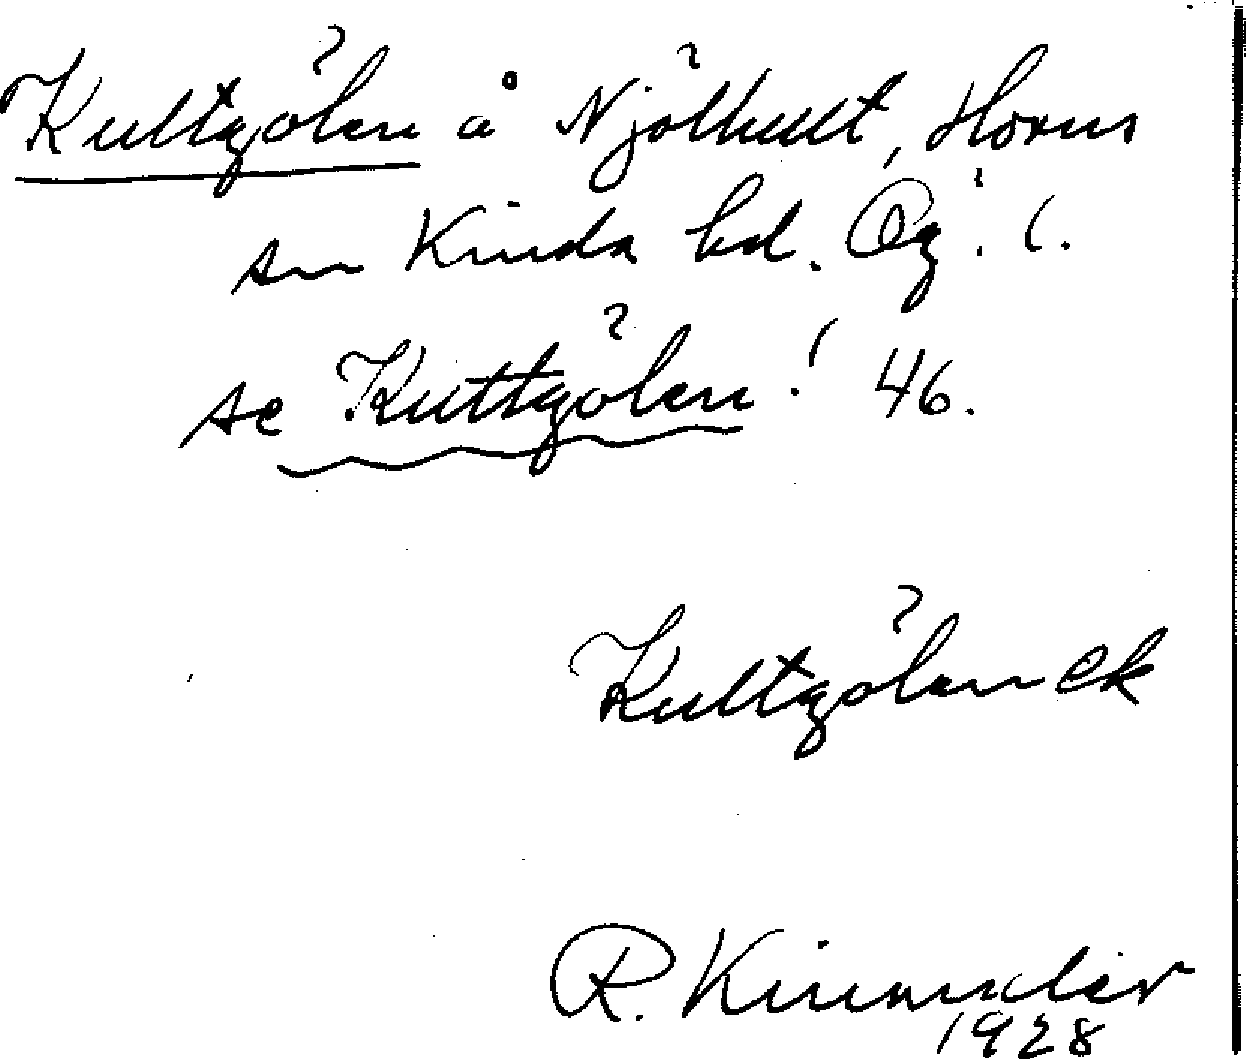 Kultgölen å Njölhult, Horns
sn Kinda hd. Ög. l.
se Kuttgölen! 46.
Kultgölen ek
R. Kinander
1928